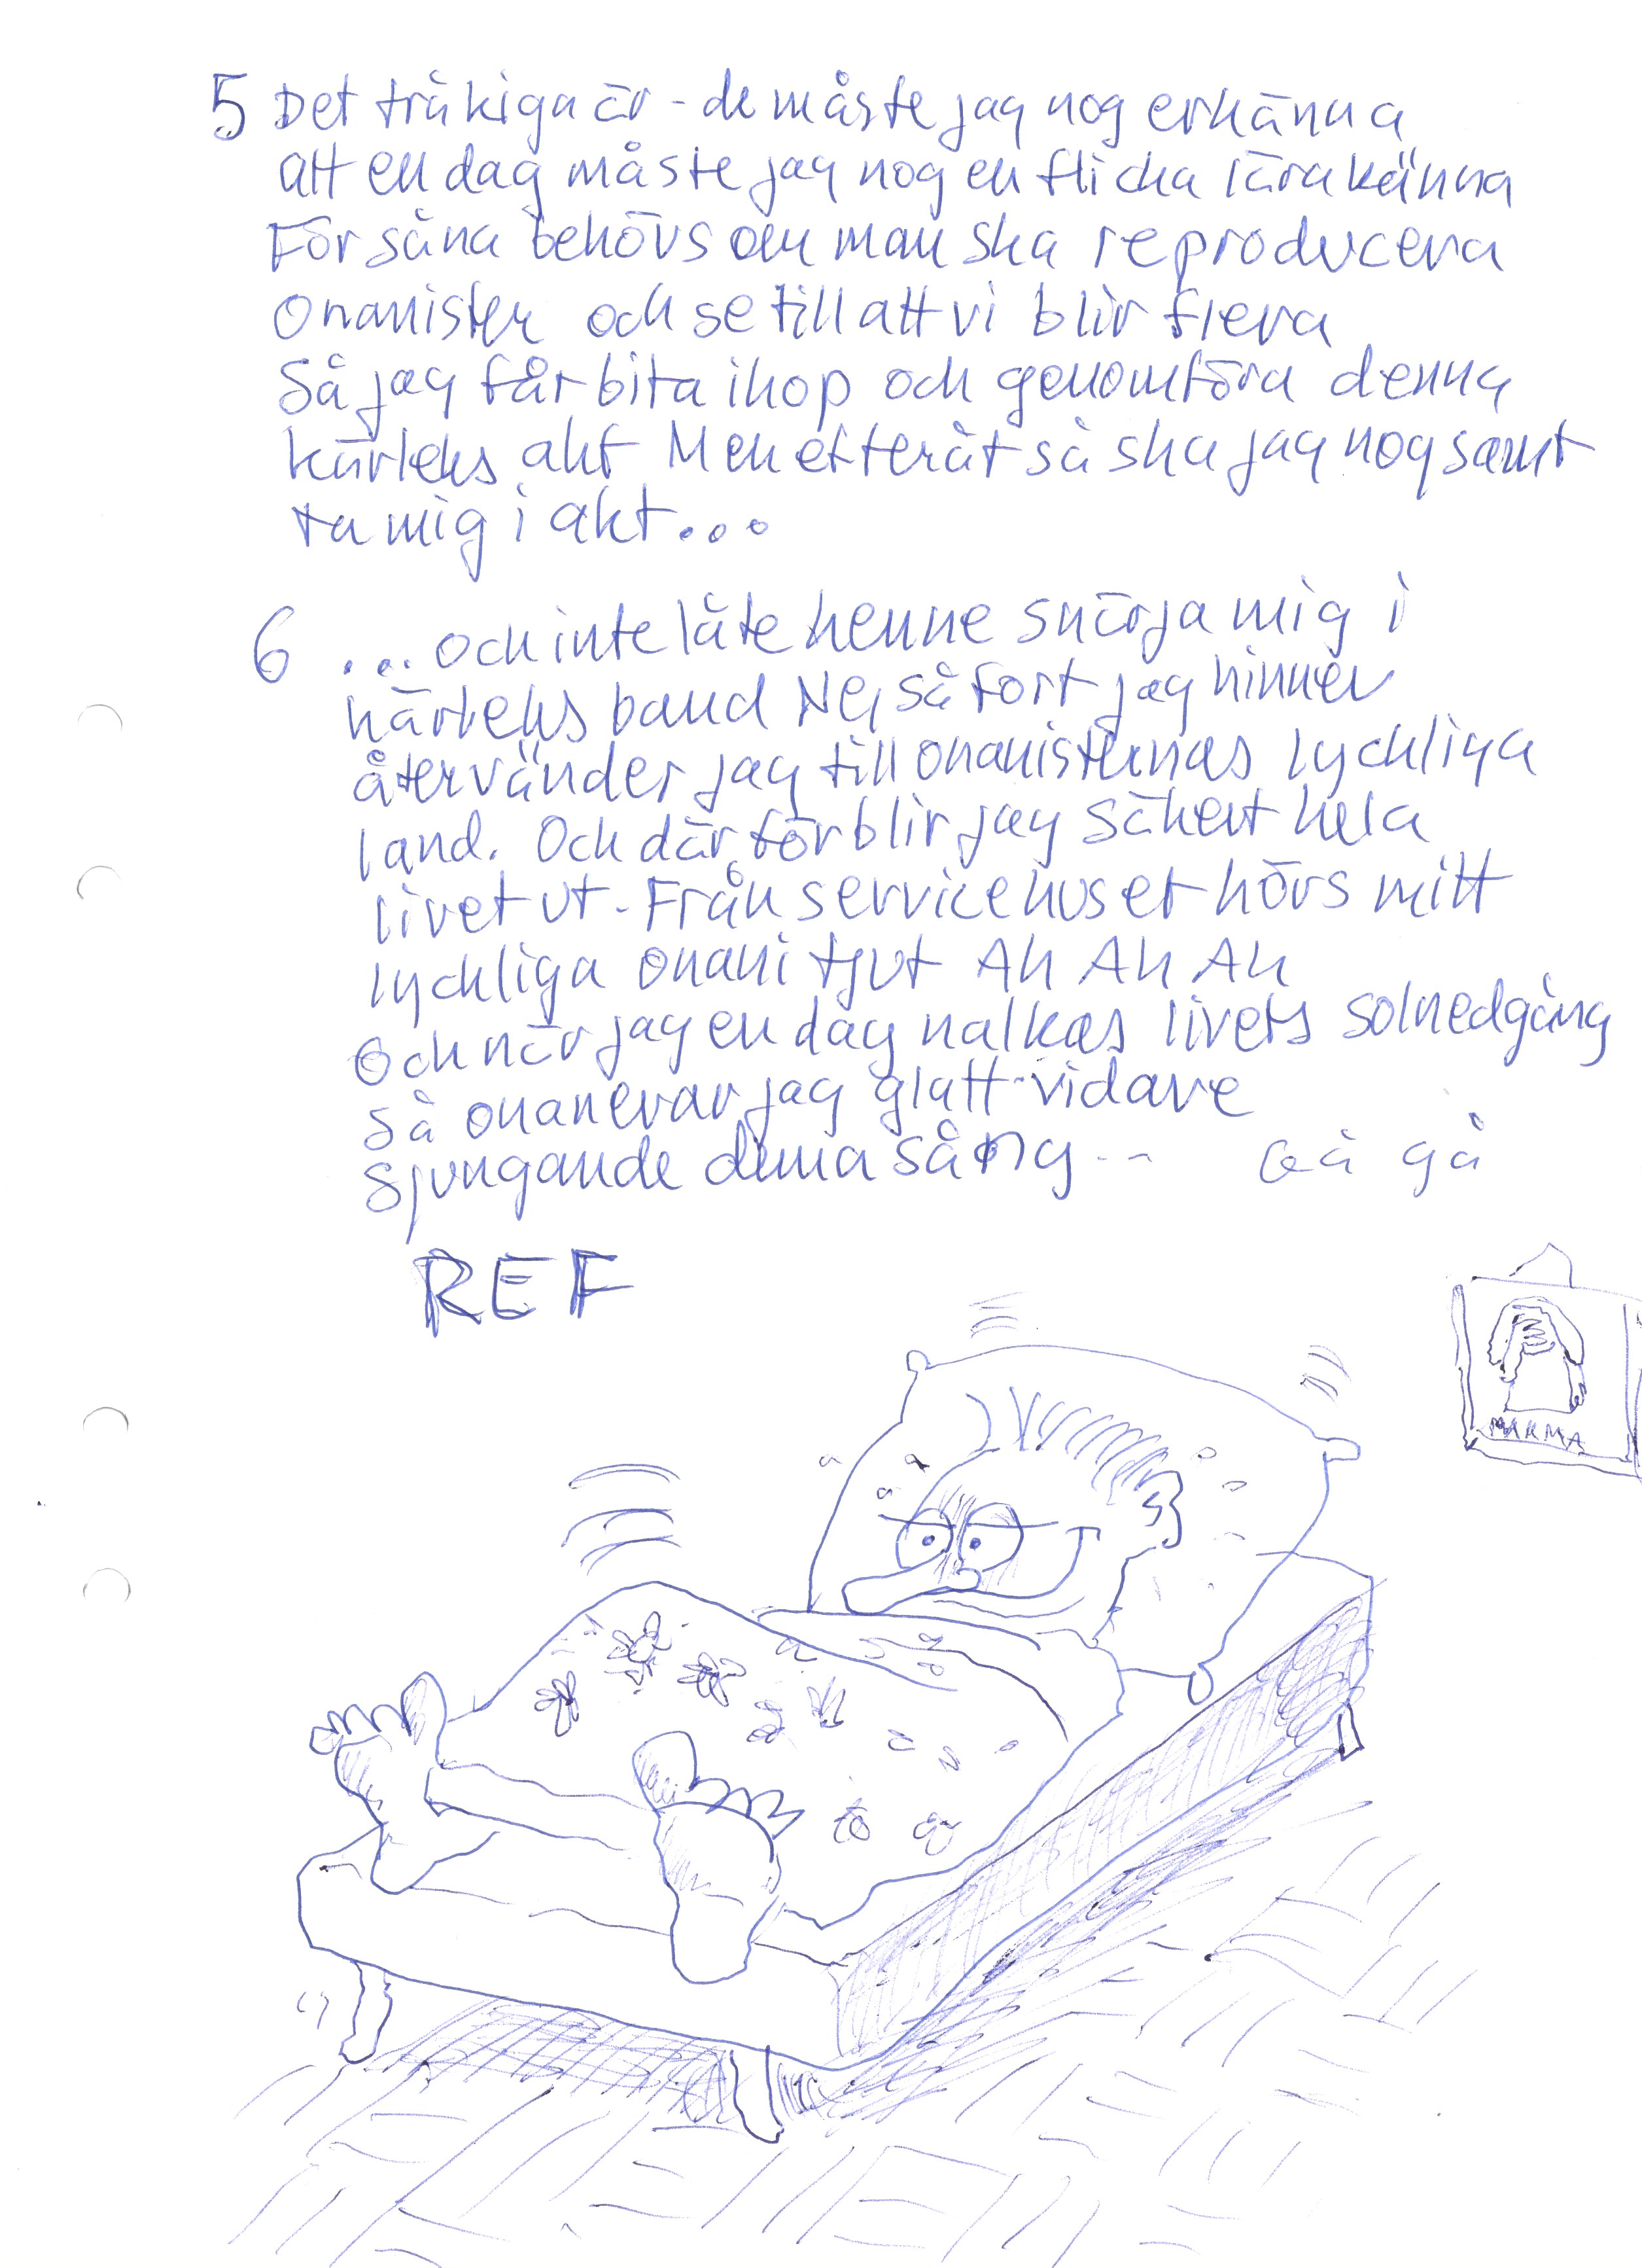 5 Det tråkiga är - de måste jag nog erkänna
att en dag måste jag nog en flicka lära känna
För såna behövs om man ska reproducera
onanister och se till att vi blir flera
Så jag får bita ihop och genomföra denna
kärleks akt Men efteråt så ska jag nogsamt
ta mig i akt...
6 ... och inte låte henne snärja mig i
kärleks band Nej så fort jag hinner
återvänder jag till onanisternas lyckliga
land. Och där förblir jag säkert hela
livet ut - Från servicehuset hörs mitt
lyckliga onani tjut Ah Ah Ah
Och när jag en dag nalkas livets solnedgång
så onanerar jag glatt vidare
sjungande denna sång -- Gå gå
REF
MAMMA